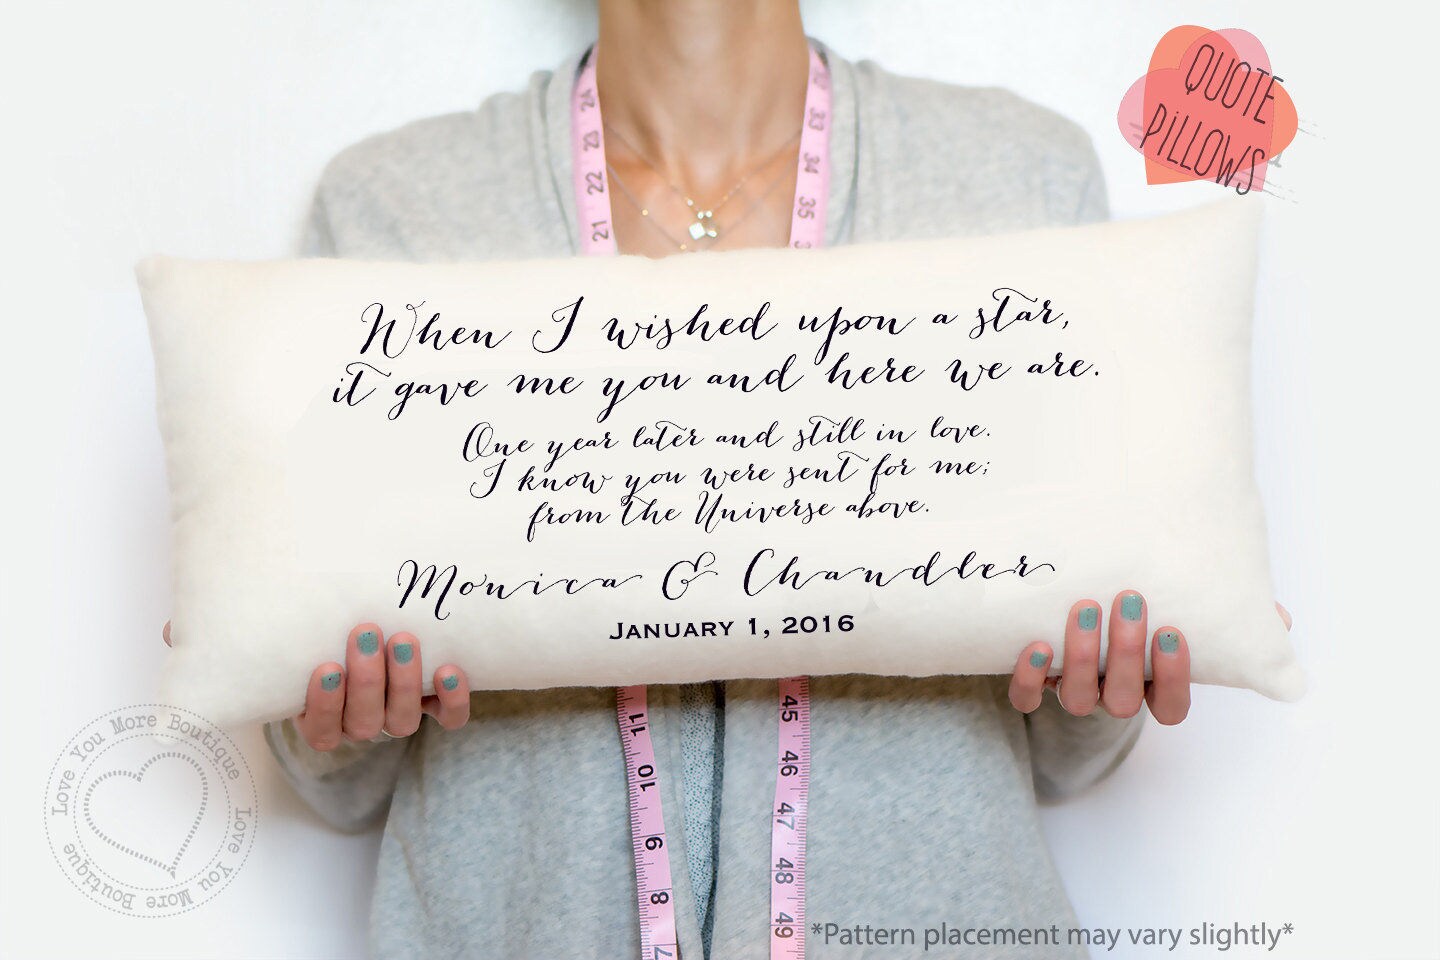 QUOTE
PiLLOWS
When I wished upon a star,
it gave me you and here we are.
One year later and still in love.
I know you were sent for me;
from the Universe above.
Monica & Chandler
JANUARY 1, 2016
24
23
22
21
33
34
35
11
10
9
8
7
45
46
47
48
49
Love You More Boutique
Love You More Boutique
*Pattern placement may vary slightly*